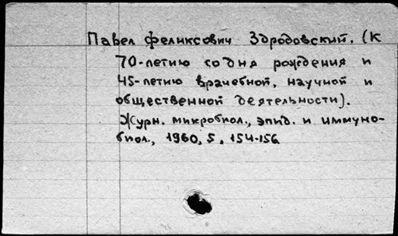 Павел Феликсович Здродовский. (К
70-летию со дня рождения и
45-летию врачебной, научной и
общественной деятельности).
Журн. микробиол., эпид. и иммуно-
биол., 1960, 5, 154-156